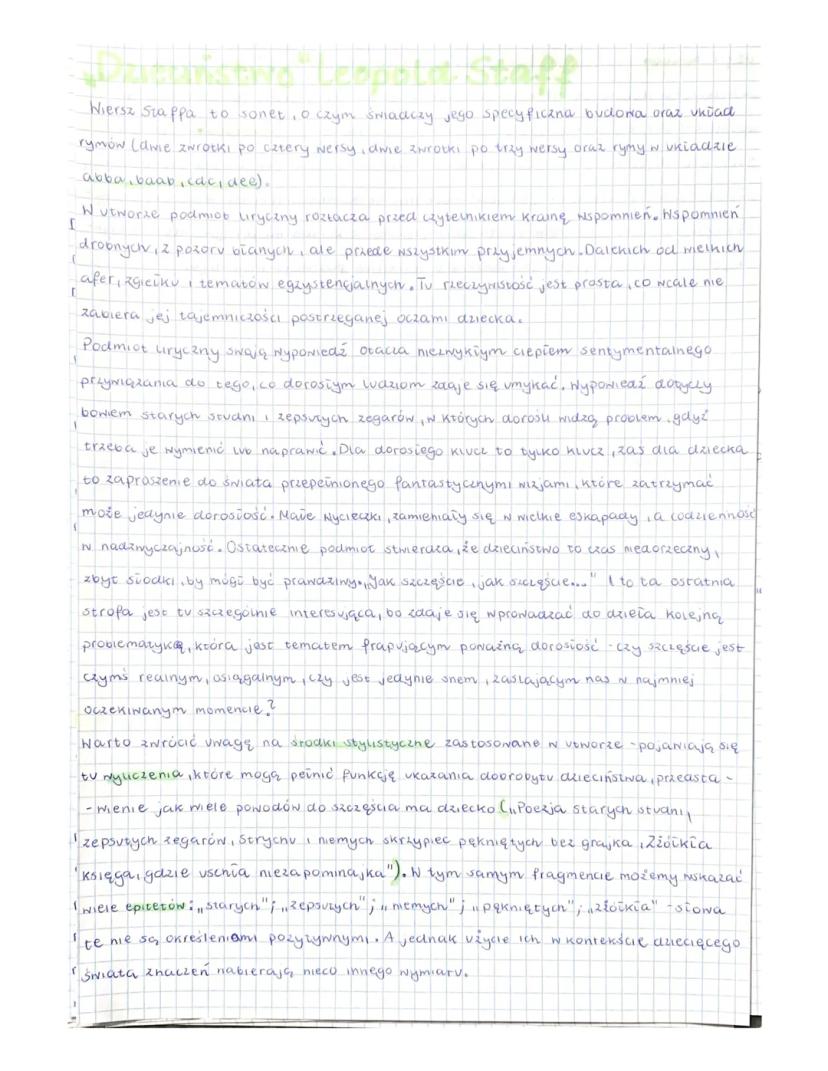 „Dzieciństwo" Leopold Staff
Wiersz Staffa to sonet, o czym świadczy jego specyficzna budowa oraz układ
rymów (dwie zwrotki po cztery wersy, dwie zwrotki po trzy wersy oraz rymy w układzie
abba, baab, cdc, dee).
W utworze podmiot liryczny roztacza przed czytelnikiem krainę wspomnień. Wspomnień
drobnych, z pozoru błahych, ale przede wszystkim przyjemnych. Dalekich od wielkich
afer, zgiełku i tematów egzystencjalnych. Tu rzeczywistość jest prosta, co wcale nie
zabiera jej tajemniczości postrzeganej oczami dziecka.
Podmiot liryczny swoją wypowiedź otacza niezwykłym ciepłem sentymentalnego
przywiązania do tego, co dorosłym ludziom zdaje się umykać. Wypowiedź dotyczy
bowiem starych studni i zepsutych zegarów, w których dorośli widzą problem, gdyż
trzeba je wymienić lub naprawić. Dla dorosłego klucz to tylko klucz, zaś dla dziecka
to zaproszenie do świata przepełnionego fantastycznymi wizjami, które zatrzymać
może jedynie dorosłość. Małe wycieczki, zamieniały się w wielkie eskapady, a codzienność
w nadzwyczajność. Ostatecznie podmiot stwierdza, że dzieciństwo to czas niedorzeczny,
zbyt słodki, by mógł być prawdziwy. „Jak szczęście, jak szczęście..." I to ta ostatnia
strofa jest tu szczególnie interesująca, bo zdaje się wprowadzać do dzieła kolejną
problematykę, która jest tematem frapującym poważną dorosłość - czy szczęście jest
czymś realnym, osiągalnym, czy jest jedynie snem, zastającym nas w najmniej
oczekiwanym momencie?
Warto zwrócić uwagę na środki stylistyczne zastosowane w utworze - pojawiają się
tu wyliczenia, które mogą pełnić funkcję ukazania dobrobytu dzieciństwa, przedsta -
- wienie jak wiele powodów do szczęścia ma dziecko („Poezja starych studni,
zepsutych zegarów, Strychu i niemych skrzypiec pękniętych bez grajka, Zżółkła
księga, gdzie uschła niezapominajka"). W tym samym fragmencie możemy wskazać
wiele epitetów: „starych"; „zepsutych"; „niemych"; „pękniętych"; „zżółkła" - słowa
te nie są określeniami pozytywnymi. A jednak użycie ich w kontekście dziecięcego
świata znaczeń nabierają nieco innego wymiaru.